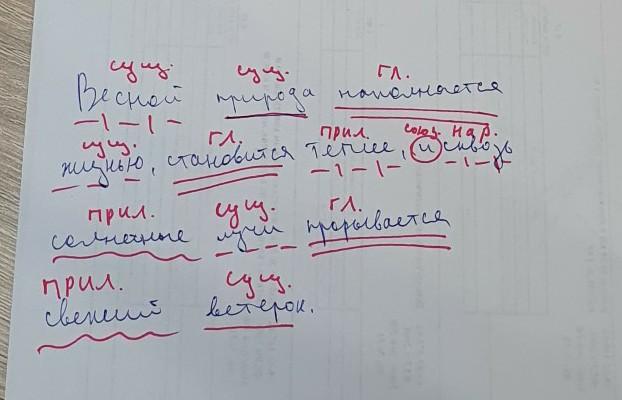 сущ. сущ. гл.
Весной природа наполняется
сущ. гл. прил. союз. нар.
жизнью, становится теплее, и сквозь
прил. сущ. гл.
солнечные лучи прорывается
прил. сущ.
свежий ветерок.